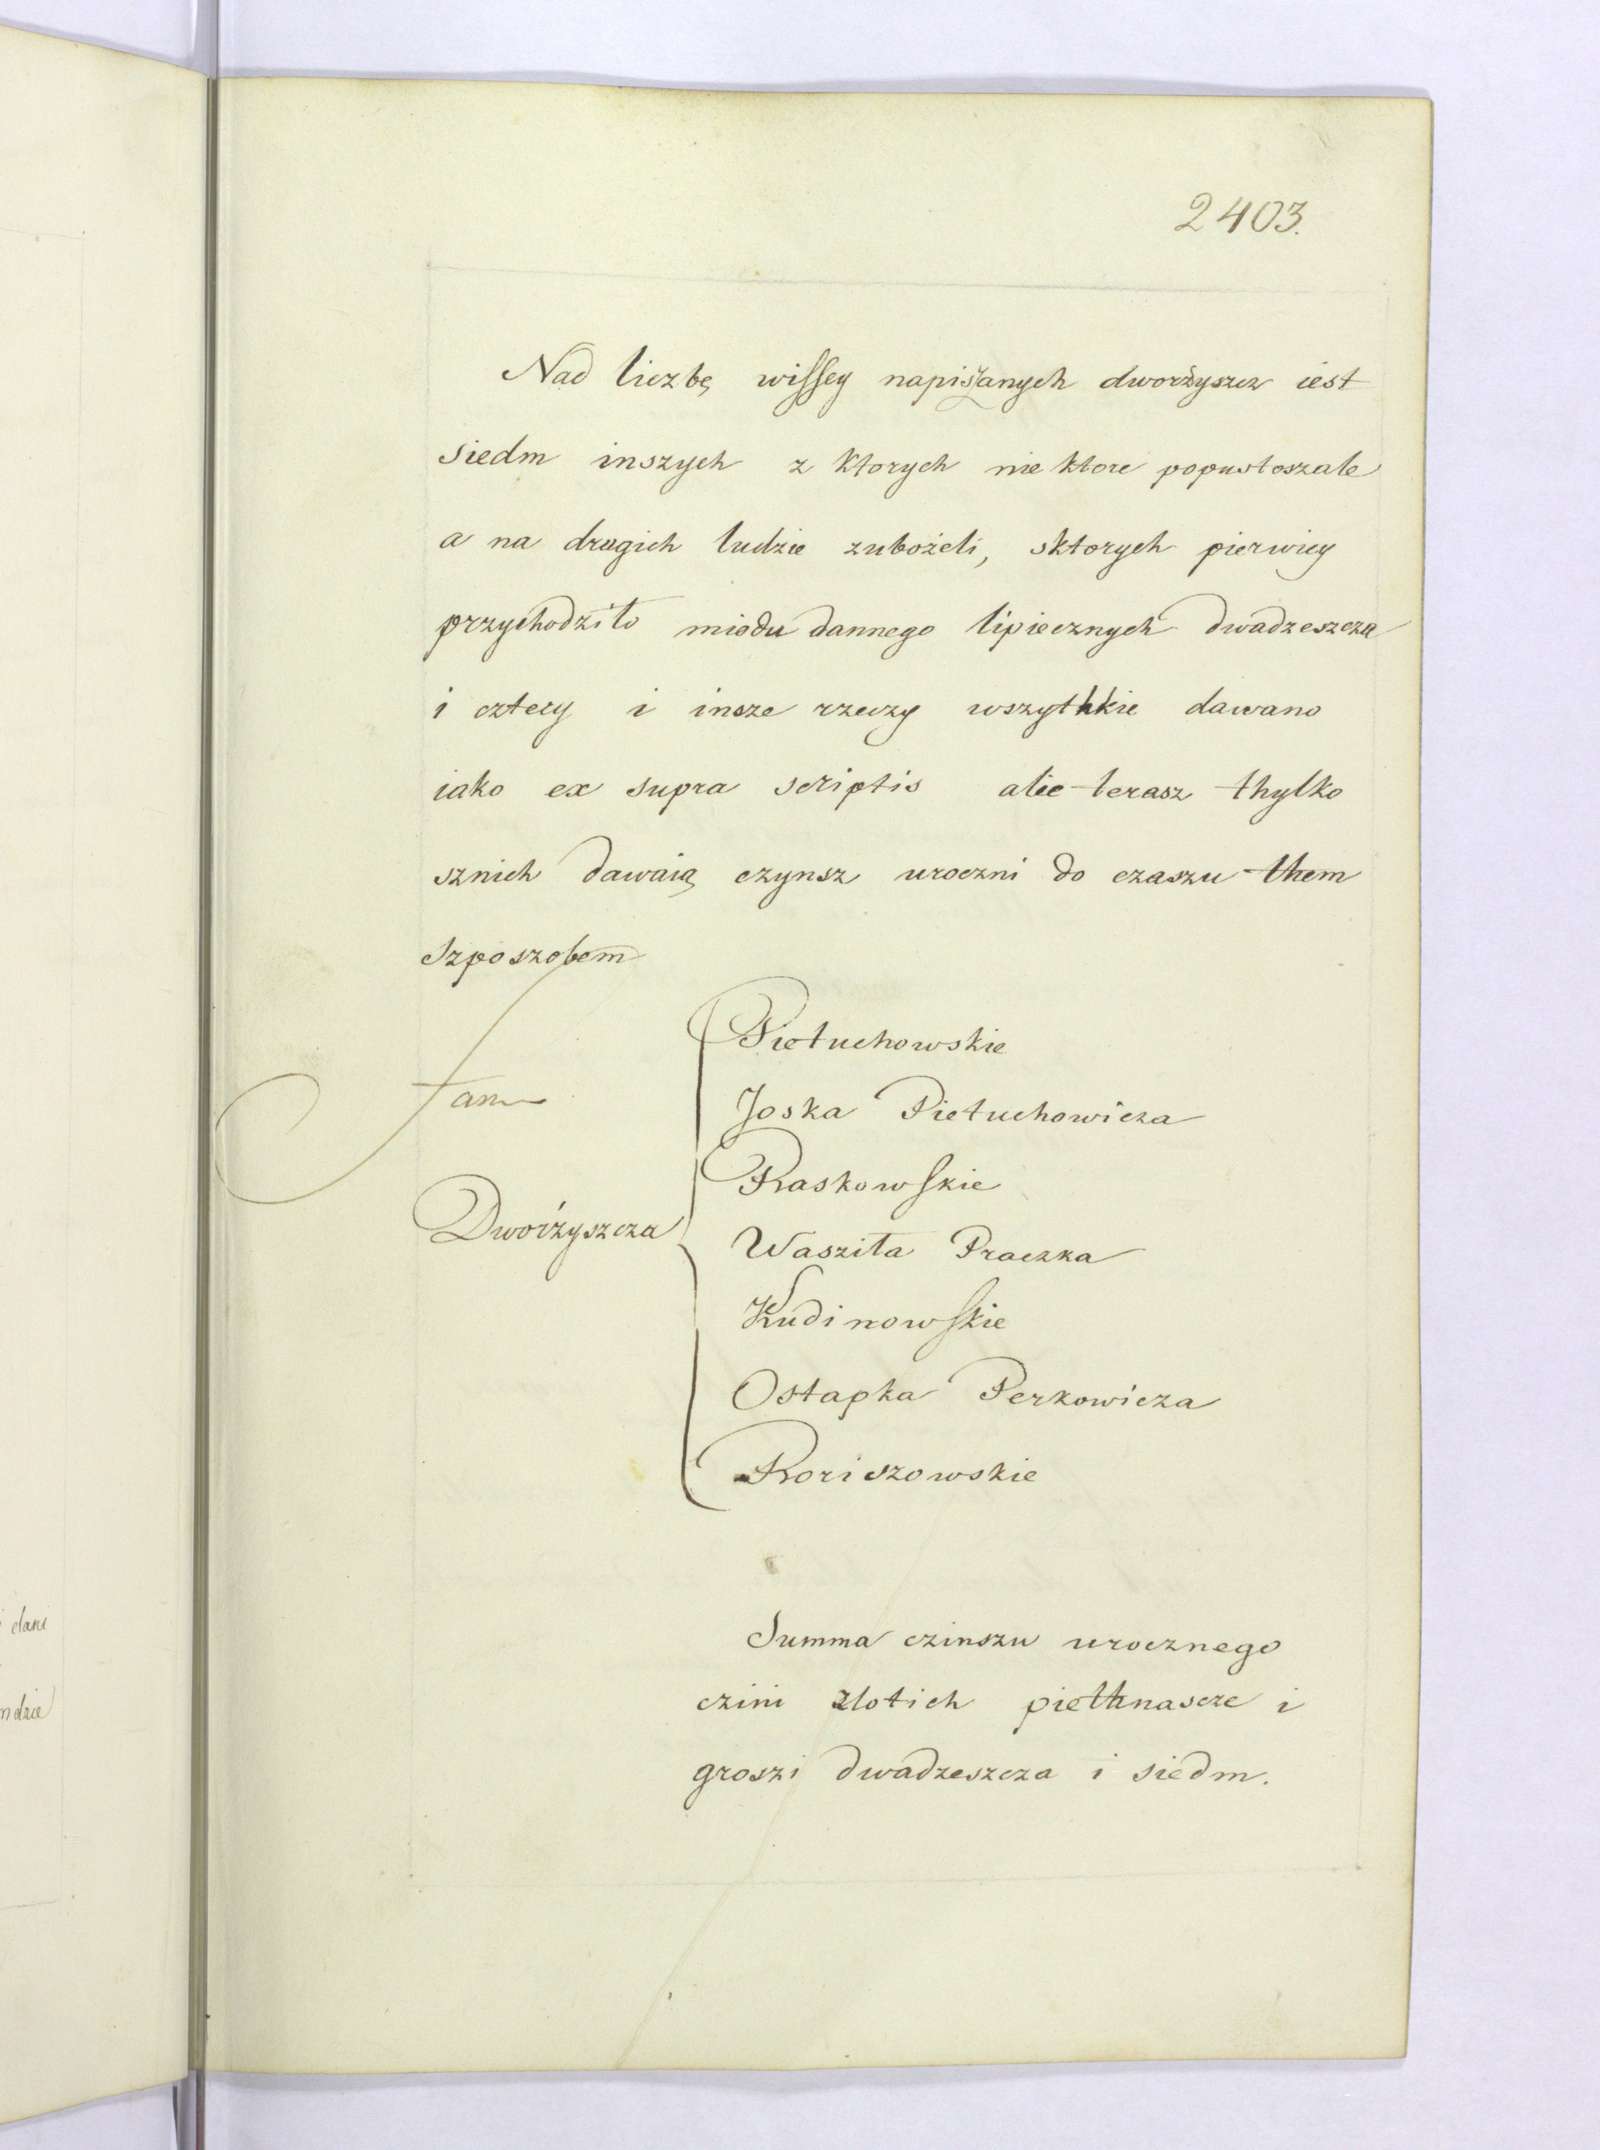 2403.
Nad liczbę wissey napiszanych dworżyszcz iest
siedm inszych z ktorych nie ktore popustoszałe
a na drugich ludzie zubożeli, sktorych pierwiey
przychodziło miodu dannego lipiecznych dwadzeszcza
i cztery i insze rzeczy wszythkie dawano
iako ex supra scriptis alie terasz thylko
sznich dawaią czynsz uroczni do czaszu them
szposzobem
Pietuchowskie
Tam
Joska Pietuchowicza
Raskowskie
Dworżyszcza
Waszila Praczka
Kudinowskie
Ostapka Perkowicza
Roriszowskie
Summa czinszu urocznego
czini zlotich piethnascze i
groszi dwadzeszcza i siedm.
i dani
ndzie